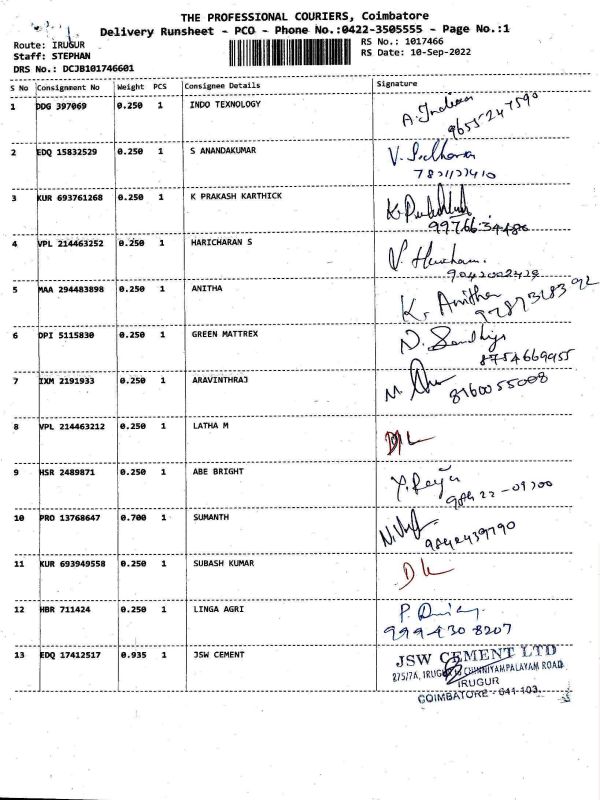 THE PROFESSIONAL COURIERS, Coimbatore
Delivery Runsheet - PCO - Phone No.:0422-3505555 - Page No.:1
Route: IRUGUR
Staff: STEPHAN
DRS No.: DCJB101746601
RS No.: 1017466
RS Date: 10-Sep-2022
S No Consignment No Weight PCS Consignee Details Signature
1 DDG 397069 0.250 1 INDO TEXNOLOGY
9655247590
2 EDQ 15832529 0.250 1 S ANANDAKUMAR
3 KUR 693761268 0.250 1 K PRAKASH KARTHICK
9976634486
4 VPL 214463252 0.250 1 HARICHARAN S
5 MAA 294483898 0.250 1 ANITHA K. Anitha
6 DPI 5115830 0.250 1 GREEN MATTREX
8754669955
7 IXM 2191933 0.250 1 ARAVINTHRAJ
8160055008
8 VPL 214463212 0.250 1 LATHA M
9 HSR 2489871 0.250 1 ABE BRIGHT
10 PRO 13768647 0.700 1 SUMANTH
11 KUR 693949558 0.250 1 SUBASH KUMAR
12 HBR 711424 0.250 1 LINGA AGRI
9994308207
13 EDQ 17412517 0.935 1 JSW CEMENT JSW CEMENT LTD
275/7A, CHINNIYAMPALAYAM ROAD
IRUGUR
COIMBATORE - 641 103.